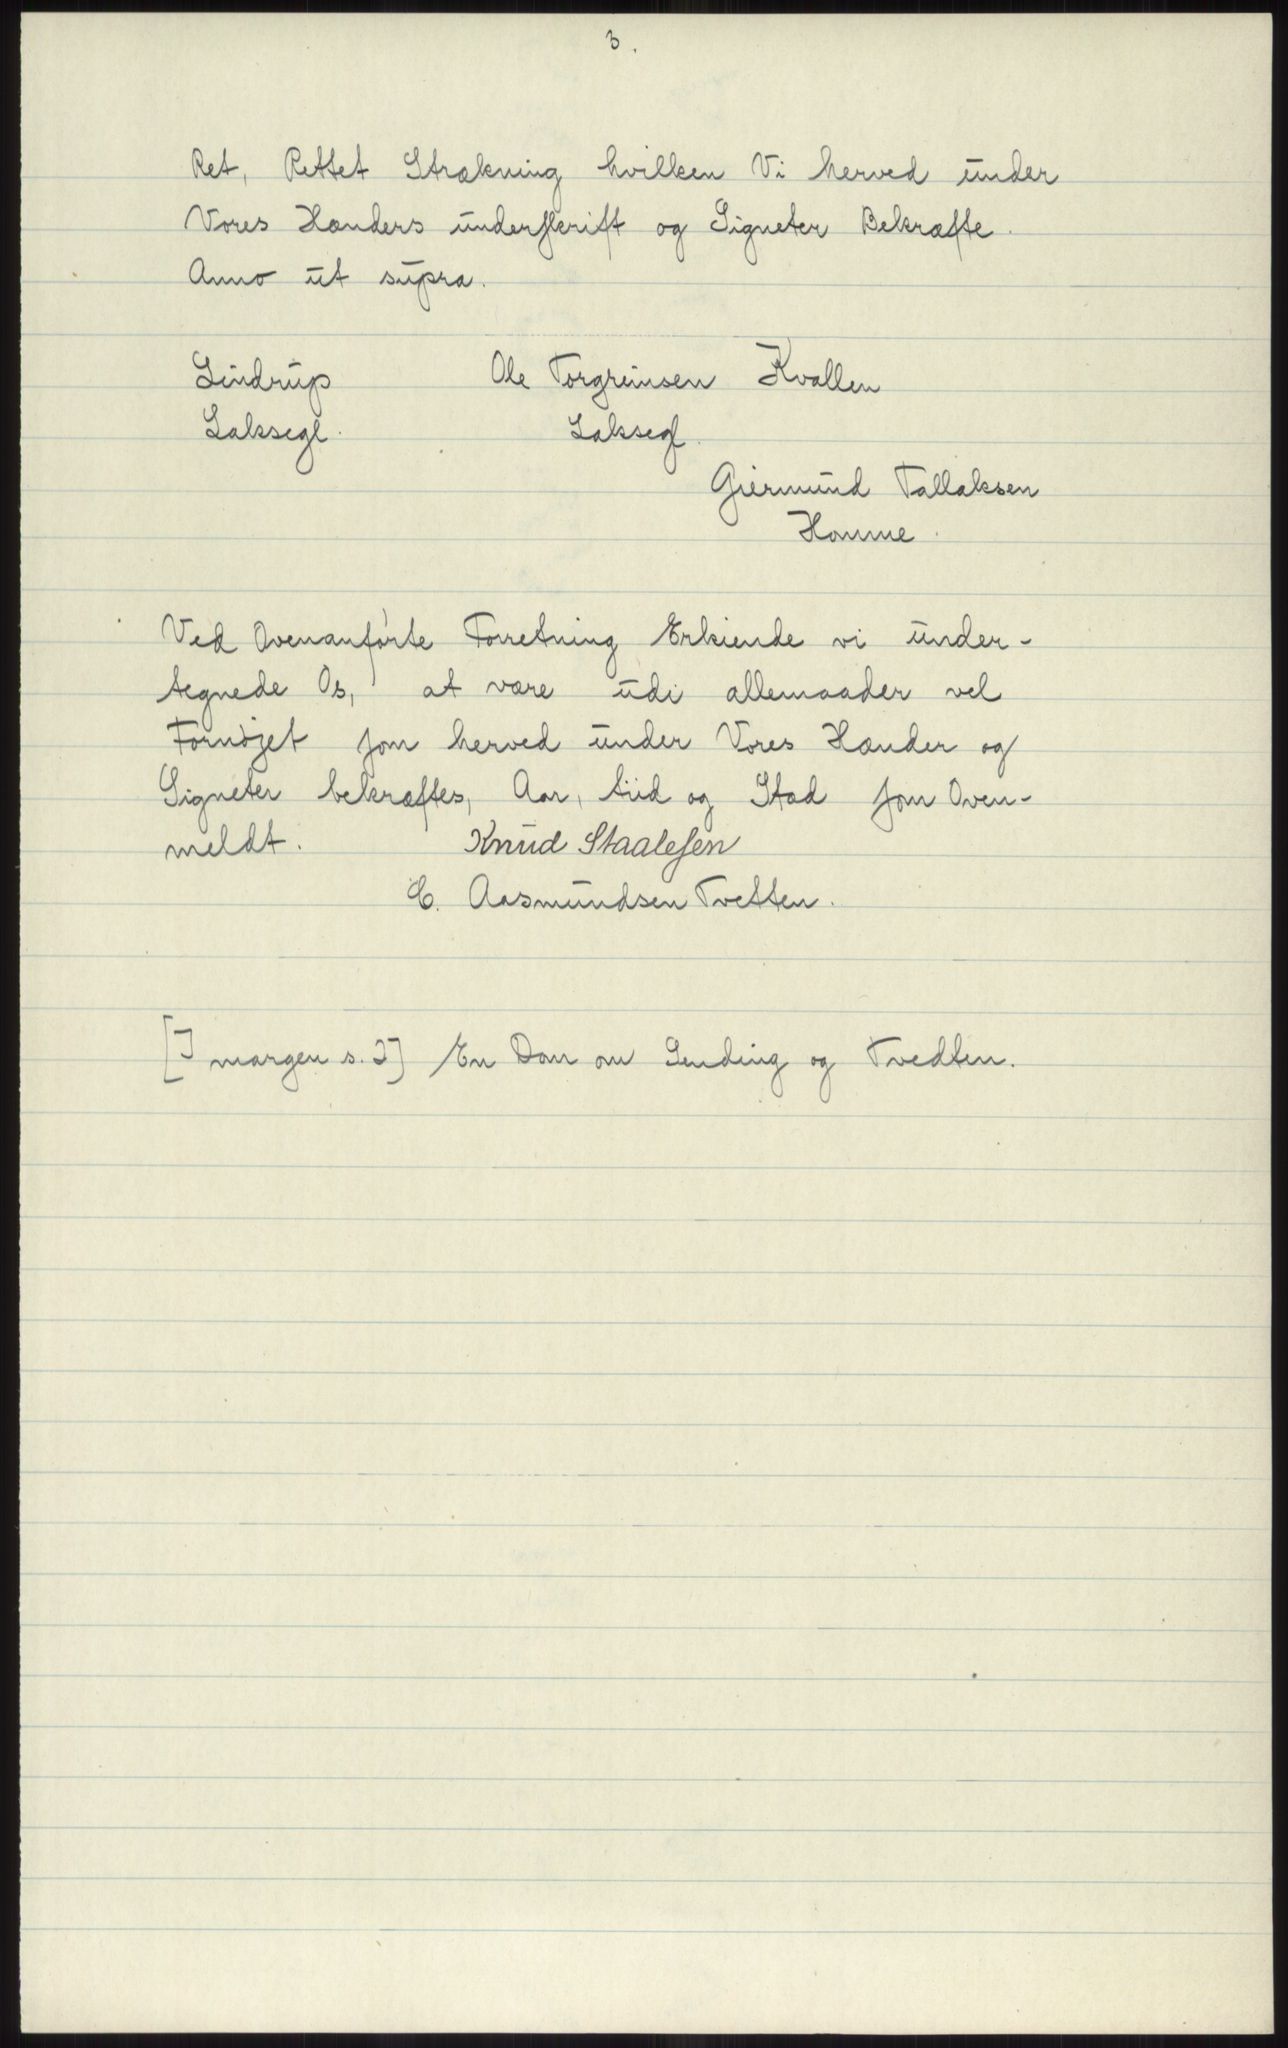 3.
Ret, Rettet Strækning hvilken Vi herved under
Vores Hænders underskrift og Signeter Bekræfte.
Anno ut supra.
Lindrup Ole Torgreinsen Kvallen
Laksegl. Laksegl.
Giermund Tallaksen
Homme.
Ved Ovenanførte Forretning Erkiende vi under-
tegnede Os, at være udi allemaader vel
Fornøjet som herved under Vores Hænder og
Signeter bekræftes, Aar, tiid og Stad som Oven-
meldt. Knud Staalesen
E. Aasmundsen Tvetten.
[I margen s. 2] En Dom om Lending og Tvedten.